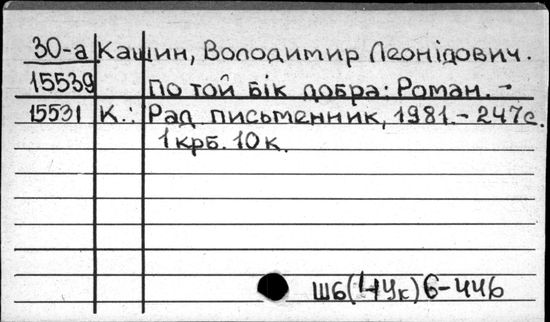 30-а Кашин, Володимир Леонідович.
15539 По той бік добра: Роман. –
15531 К.: Рад. письменник, 1981. – 247с.
1 крб. 10 к.
Ш6(4Ук)6-446